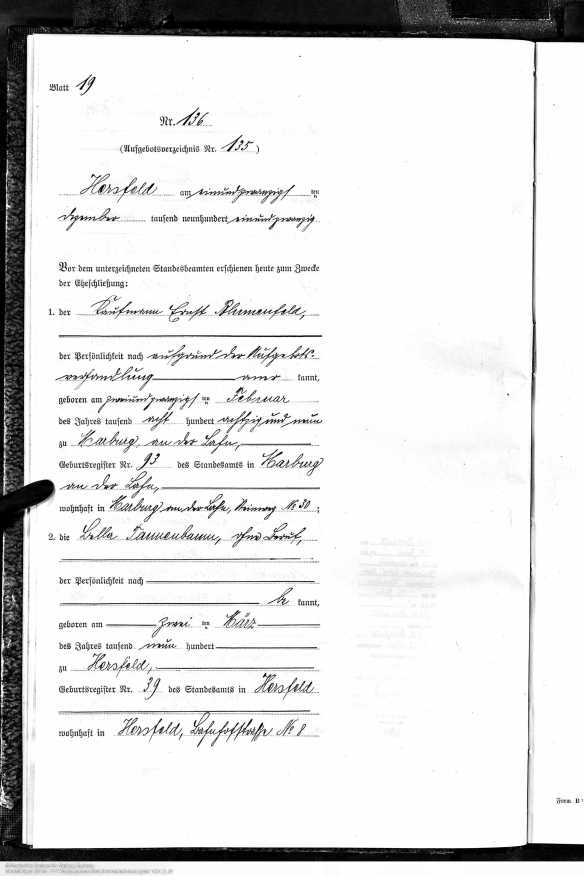 Blatt 19
Nr. 136
(Aufgebotsverzeichnis Nr. 135)
Hersfeld am einundzwanzigsten
Dezember tausend neunhundert einundzwanzig
Vor dem unterzeichneten Standesbeamten erschienen heute zum Zwecke
der Eheschließung:
1. der Kaufmann Ernst Blumenfeld,
der Persönlichkeit nach aufgrund der Aufgebots-
verhandlung aner kannt,
geboren am zweiundzwanzigsten Februar
des Jahres tausend acht hundert achtzig und neun
zu Marburg an der Lahn,
Geburtsregister Nr. 93 des Standesamts in Marburg
an der Lahn,
wohnhaft in Marburg an der Lahn, No 30;
2. die Bella Tannenbaum, ohne Beruf,
der Persönlichkeit nach
be kannt,
geboren am zwei ten März
des Jahres tausend neun hundert
zu Hersfeld,
Geburtsregister Nr. 39 des Standesamts in Hersfeld
wohnhaft in Hersfeld, Bahnhofstraße No 8